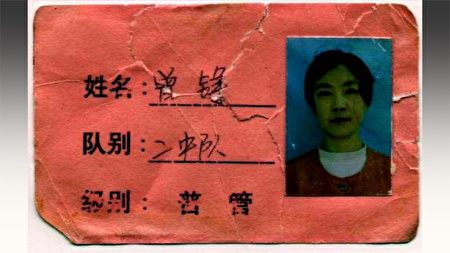 姓名：曾铮
队别：二中队
级别：普管